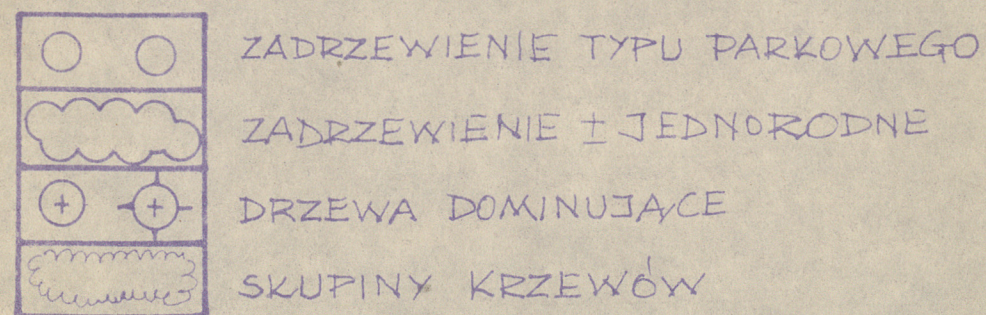 ZADRZEWIENIE TYPU PARKOWEGO
ZADRZEWIENIE ± JEDNORODNE
DRZEWA DOMINUJĄCE
SKUPINY KRZEWÓW